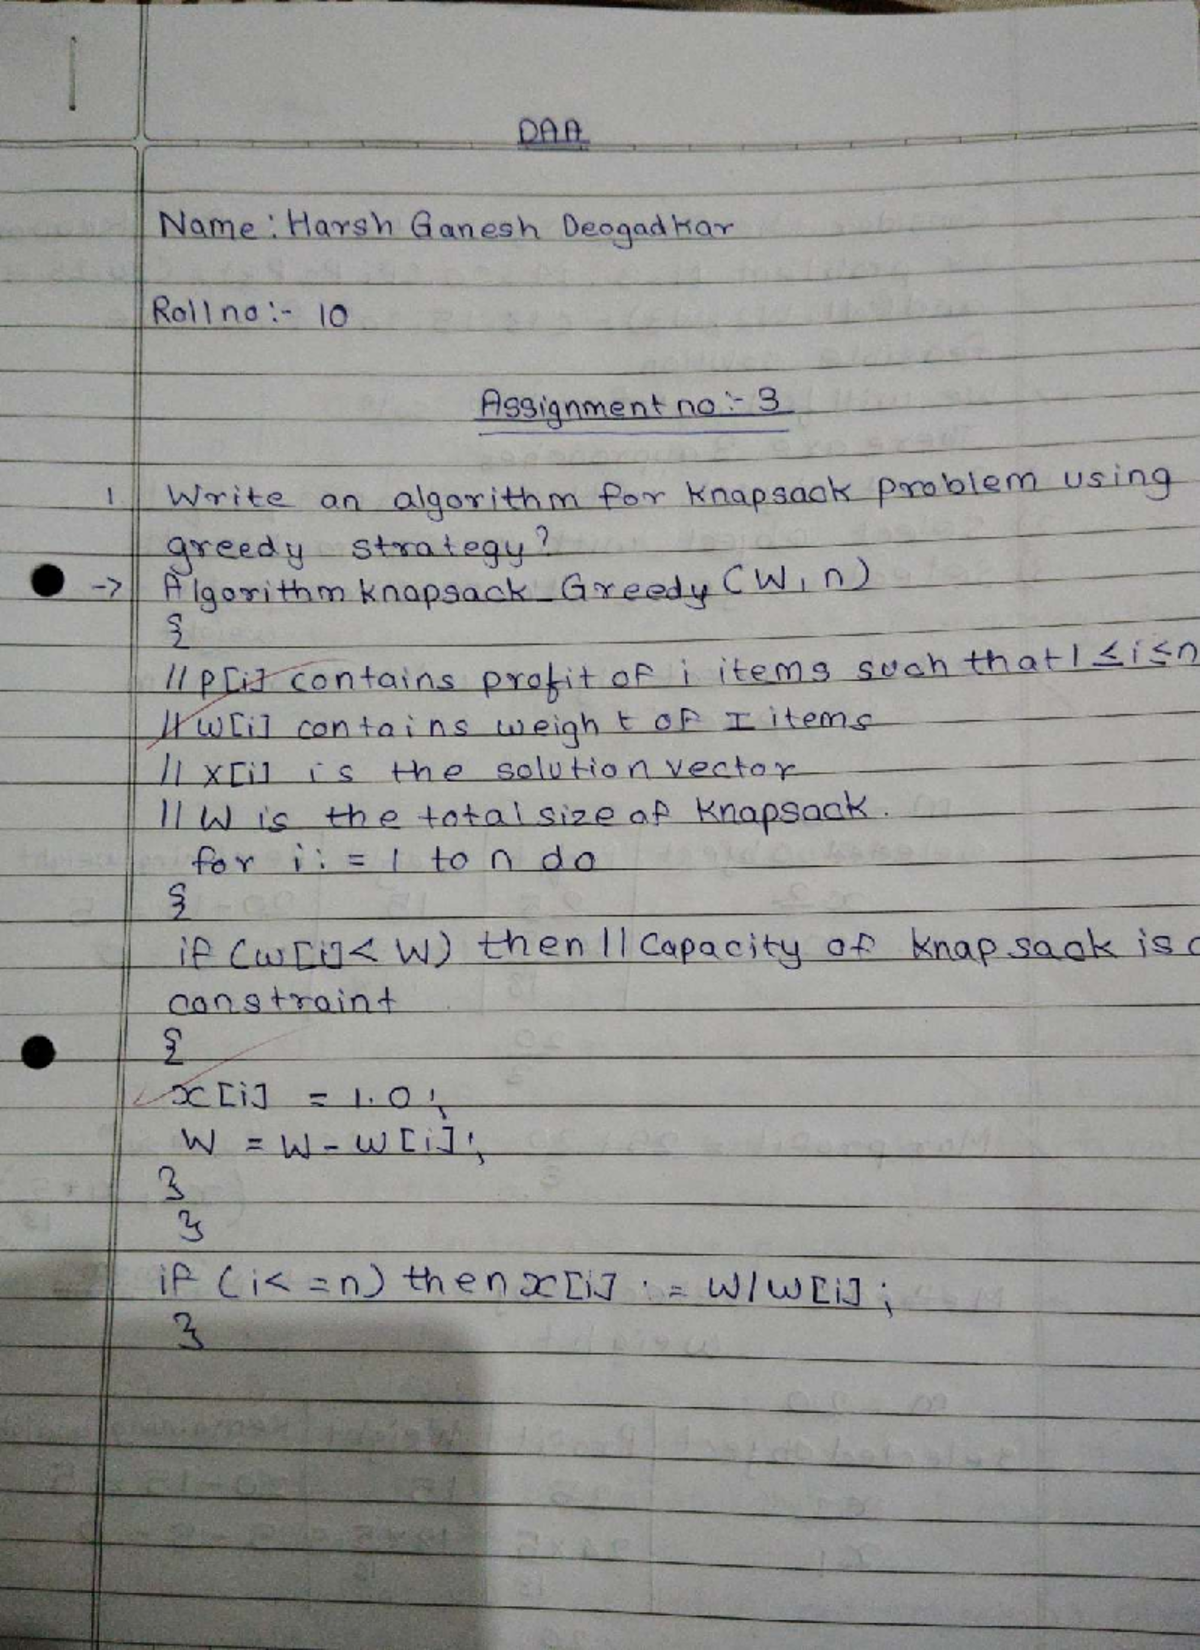 DAA
Name: Harsh Ganesh Deogadkar
Roll no:- 10
Assignment no:- 3
1 Write an algorithm for knapsack problem using
greedy strategy?
-> Algorithm knapsack_Greedy (W, n)
{
// P[i] contains profit of i items such that 1 ≤ i ≤ n
// w[i] contains weight of I items
// x[i] is the solution vector
// W is the total size of knapsack.
for i := 1 to n do
{
if (w[i] < W) then // Capacity of knapsack is a
constraint
{
x[i] = 1.0;
W = W - w[i];
}
}
if (i <= n) then x[i] := W/w[i];
}